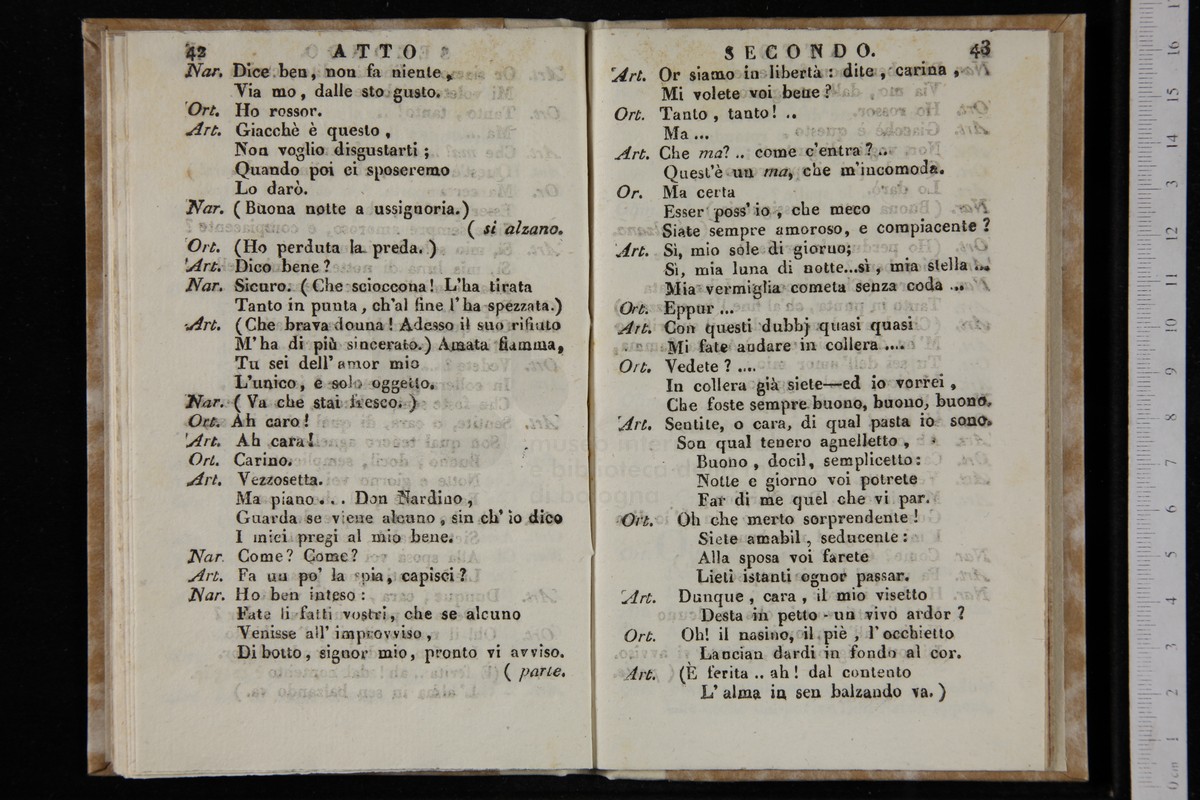 42 ATTO
Nar. Dice ben, non fa niente,
Via mo, dalle sto gusto.
Ort. Ho rossor.
Art. Giacchè è questo,
Non voglio disgustarti;
Quando poi ci sposeremo
Lo darò.
Nar. (Buona notte a ussignoria.)
( si alzano.
Ort. (Ho perduta la preda.)
Art. Dico bene?
Nar. Sicuro. (Che scioccona! L'ha tirata
Tanto in punta, ch'al fine l'ha spezzata.)
Art. (Che brava donna! Adesso il suo rifiuto
M'ha di più sincerato.) Amata fiamma,
Tu sei dell'amor mio
L'unico, e solo oggetto.
Nar. (Va che stai fresco.)
Ort. Ah caro!
Art. Ah cara!
Ort. Carino.
Art. Vezzosetta.
Ma piano... Don Nardino,
Guarda se viene alcuno, sin ch'io dico
I miei pregi al mio bene.
Nar. Come? Come?
Art. Fa un po' la spia, capisci?
Nar. Ho ben inteso:
Fate li fatti vostri, che se alcuno
Venisse all'improvviso,
Di botto, signor mio, pronto vi avviso.
( parte.
SECONDO. 43
Art. Or siamo in libertà: dite, carina,
Mi volete voi bene?
Ort. Tanto, tanto! ..
Ma...
Art. Che ma? .. come c'entra? ..
Quest'è un ma, che m'incomoda.
Or. Ma certa
Esser poss'io, che meco
Siate sempre amoroso, e compiacente?
Art. Sì, mio sole di giorno;
Sì, mia luna di notte...sì, mia stella ...
Mia vermiglia cometa senza coda ...
Ort. Eppur ...
Art. Con questi dubbj quasi quasi
Mi fate andare in collera ....
Ort. Vedete? ....
In collera già siete—ed io vorrei,
Che foste sempre buono, buono, buono.
Art. Sentite, o cara, di qual pasta io sono.
Son qual tenero agnelletto,
Buono, docil, semplicetto:
Notte e giorno voi potrete
Far di me quel che vi par.
Ort. Oh che merto sorprendente!
Siete amabil, seducente:
Alla sposa voi farete
Lieti istanti ognor passar.
Art. Dunque, cara, il mio visetto
Desta in petto un vivo ardor?
Ort. Oh! il nasino, il piè, l'occhietto
Lancian dardi in fondo al cor.
Art. (È ferita .. ah! dal contento
L'alma in sen balzando va.)